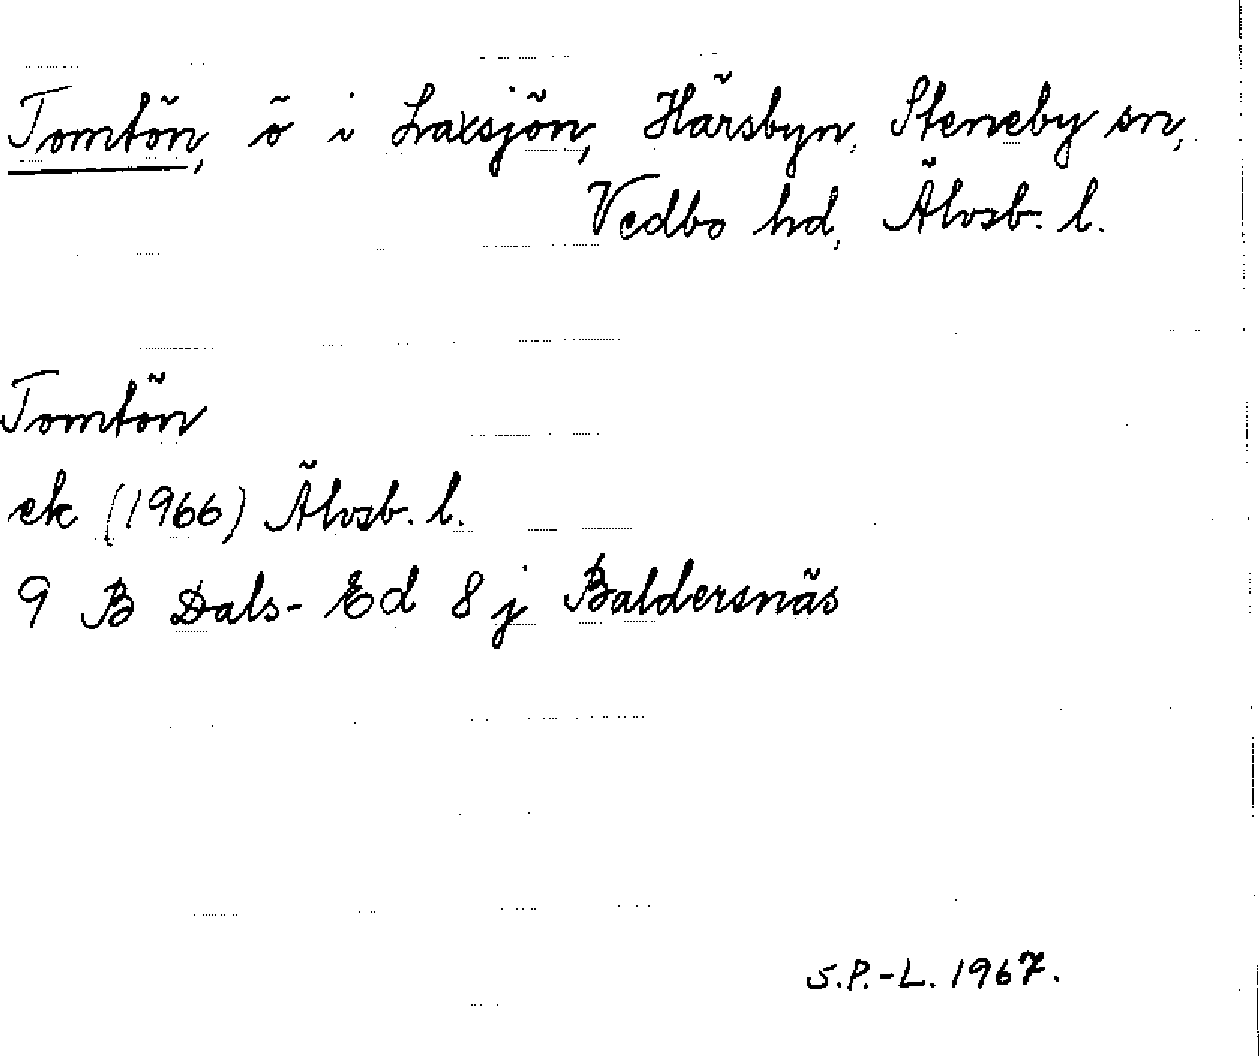 Tomtön, ö i Laxsjön, Härsbyn, Steneby sn,
Vedbo hd, Älvsb. l.
Tomtön
ek (1966) Älvsb. l.
9 B Dals-Ed 8 j Baldersnäs
S.P.-L. 1967.